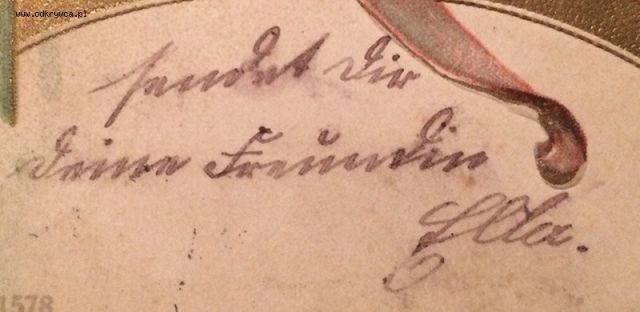 www.odkrywca.pl
sendet dir
deine Freundin
Ella.
1578